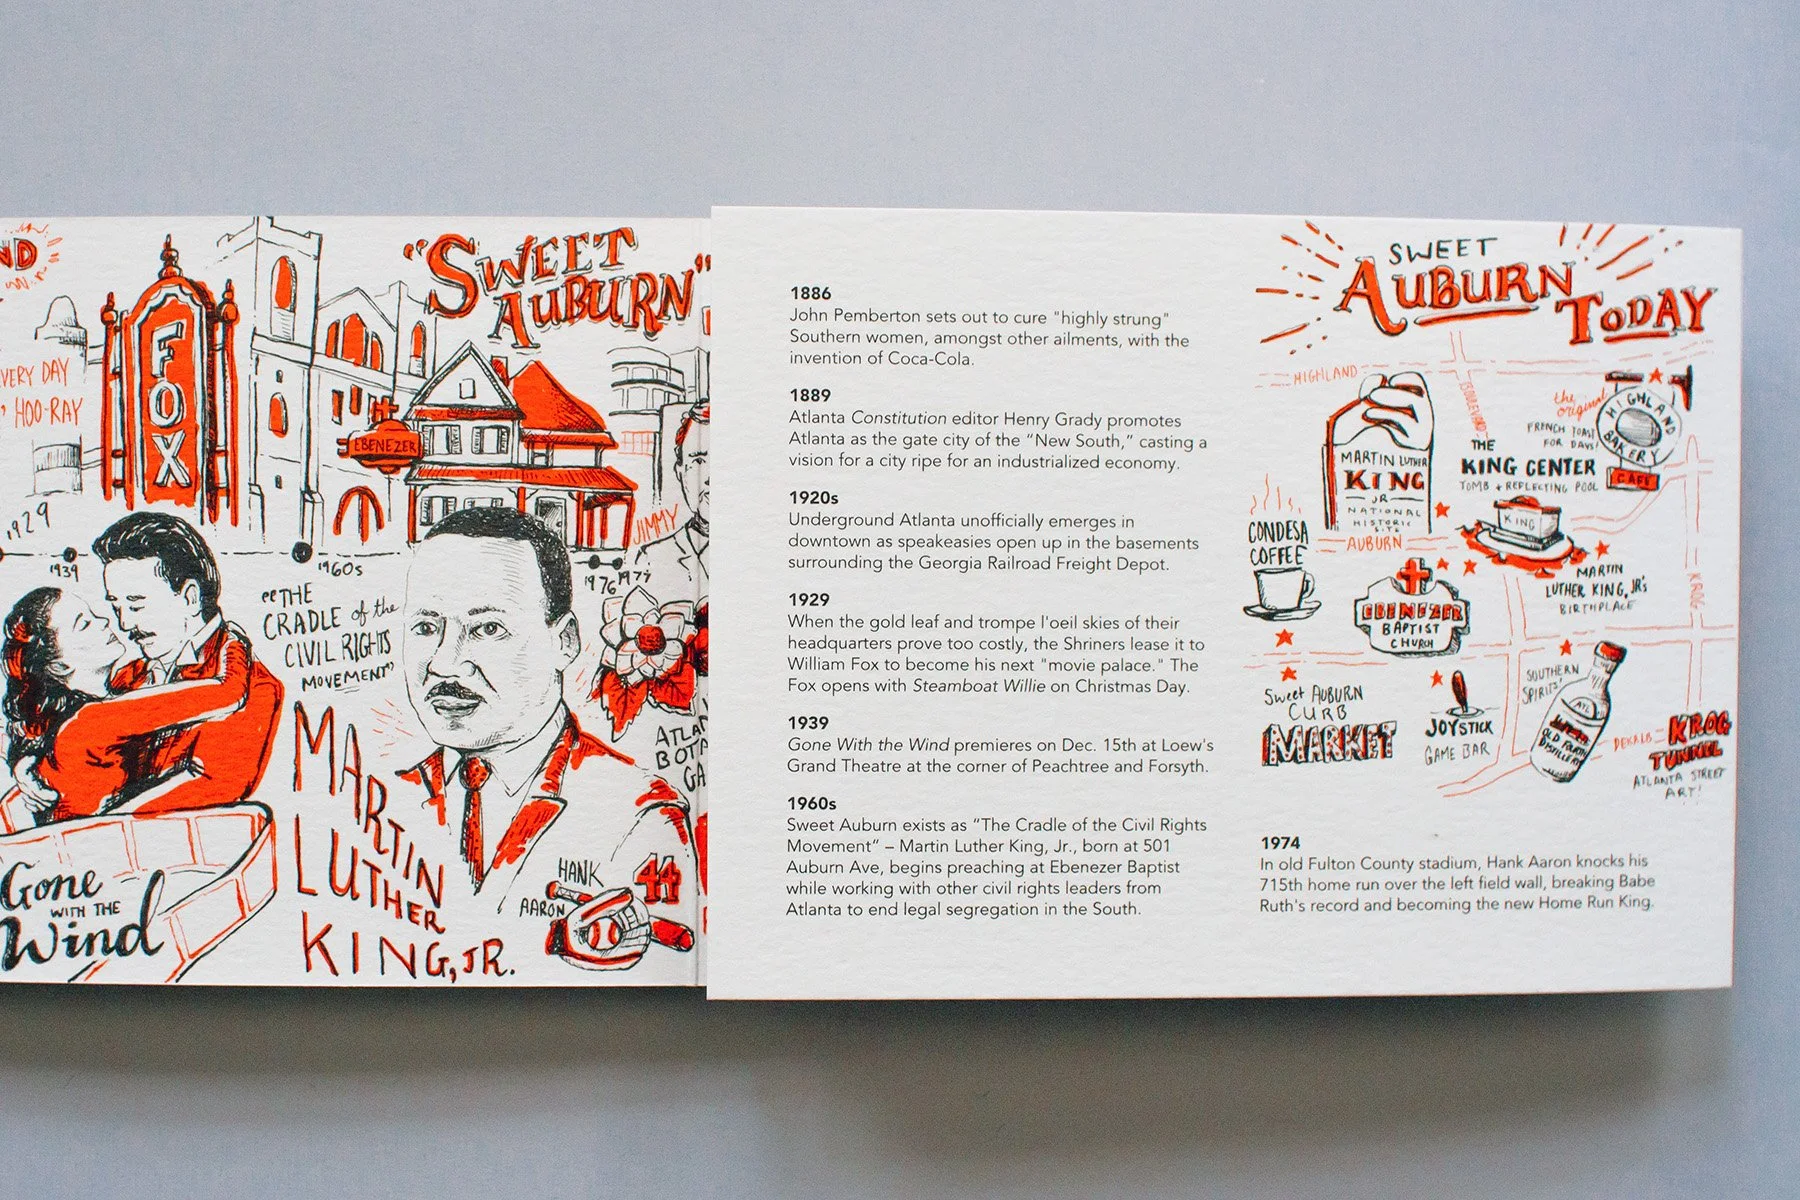 VERY DAY
HOO-RAY
FOX
"SWEET
AUBURN"
EBENEZER
1929
1939
1960s
1976
JIMMY
"THE
CRADLE of the
CIVIL RIGHTS
MOVEMENT"
MARTIN
LUTHER
KING, JR.
Gone
WITH THE
Wind
HANK
AARON
44
1886
John Pemberton sets out to cure "highly strung"
Southern women, amongst other ailments, with the
invention of Coca-Cola.
1889
Atlanta Constitution editor Henry Grady promotes
Atlanta as the gate city of the “New South,” casting a
vision for a city ripe for an industrialized economy.
1920s
Underground Atlanta unofficially emerges in
downtown as speakeasies open up in the basements
surrounding the Georgia Railroad Freight Depot.
1929
When the gold leaf and trompe l'oeil skies of their
headquarters prove too costly, the Shriners lease it to
William Fox to become his next "movie palace." The
Fox opens with Steamboat Willie on Christmas Day.
1939
Gone With the Wind premieres on Dec. 15th at Loew's
Grand Theatre at the corner of Peachtree and Forsyth.
1960s
Sweet Auburn exists as “The Cradle of the Civil Rights
Movement” – Martin Luther King, Jr., born at 501
Auburn Ave, begins preaching at Ebenezer Baptist
while working with other civil rights leaders from
Atlanta to end legal segregation in the South.
SWEET
AUBURN
TODAY
HIGHLAND
BOULEVARD
the
original
HIGHLAND
BAKERY
CAFE
FRENCH TOAST
FOR DAYS!
MARTIN LUTHER
KING
JR
NATIONAL
HISTORIC
SITE
THE
KING CENTER
TOMB + REFLECTING POOL
KING
CONDESA
COFFEE
AUBURN
EBENEZER
BAPTIST
CHURCH
MARTIN
LUTHER KING, JR'S
BIRTHPLACE
KROG
Sweet AUBURN
CURB
MARKET
JOYSTICK
GAME BAR
SOUTHERN
SPIRITS!
ATL
OLD FOURTH
DISTILLERY
DEKALB
KROG
TUNNEL
ATLANTA STREET
ART!
1974
In old Fulton County stadium, Hank Aaron knocks his
715th home run over the left field wall, breaking Babe
Ruth's record and becoming the new Home Run King.